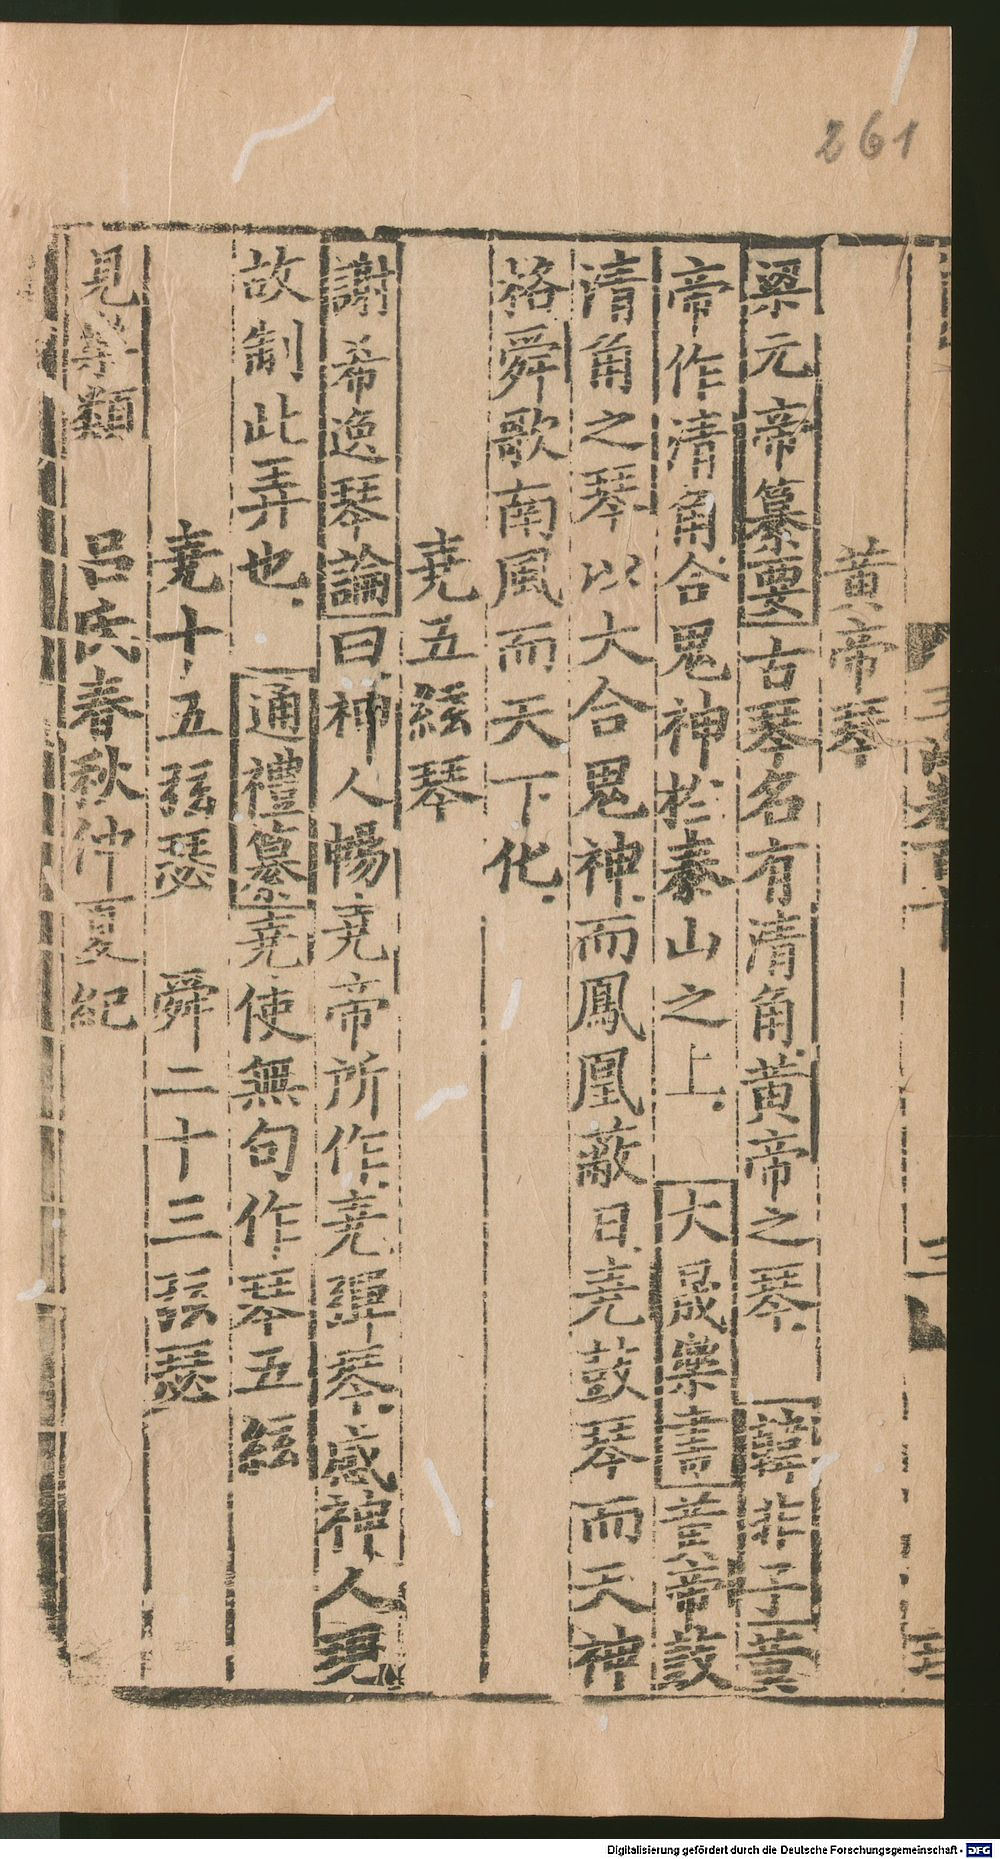 261
黃帝琴
梁元帝纂要古琴名有清角黃帝之琴韓非子黃
帝作清角合鬼神於泰山之上大晟樂書黃帝鼓
清角之琴以大合鬼神而鳳凰蔽日堯鼓琴而天神
格舜歌南風而天下化
堯五絃琴
謝希逸琴論曰神人暢堯帝所作堯彈琴感神人現
故制此弄也通禮纂堯使無句作琴五絃
堯十五絃瑟 舜二十三絃瑟
見樂類 呂氏春秋仲夏紀
Digitalisierung gefördert durch die Deutsche Forschungsgemeinschaft - DFG